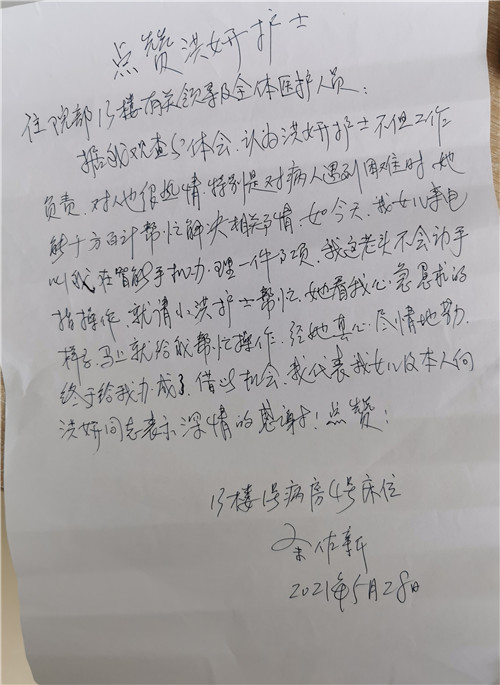 点赞洪妍护士
住院部13楼有关领导及全体医护人员：
据我观查与体会、认为洪妍护士不但工作
负责、对人也很热情、特别是对病人遇到困难时、她
能千方百计帮忙解决相关事情、如今天、我女儿来电
叫我在智能手机办理一件事项、我这老头不会动手
指操作、就请小洪护士帮忙、她看我心急恳求的
样子、马上就给我帮忙操作、经她真心尽情地
终于给我办成了、借此机会、我代表我女儿及本人向
洪妍同志表示深情的感谢！点赞！
13楼1号病房4号床位
佐新
2021年5月28日